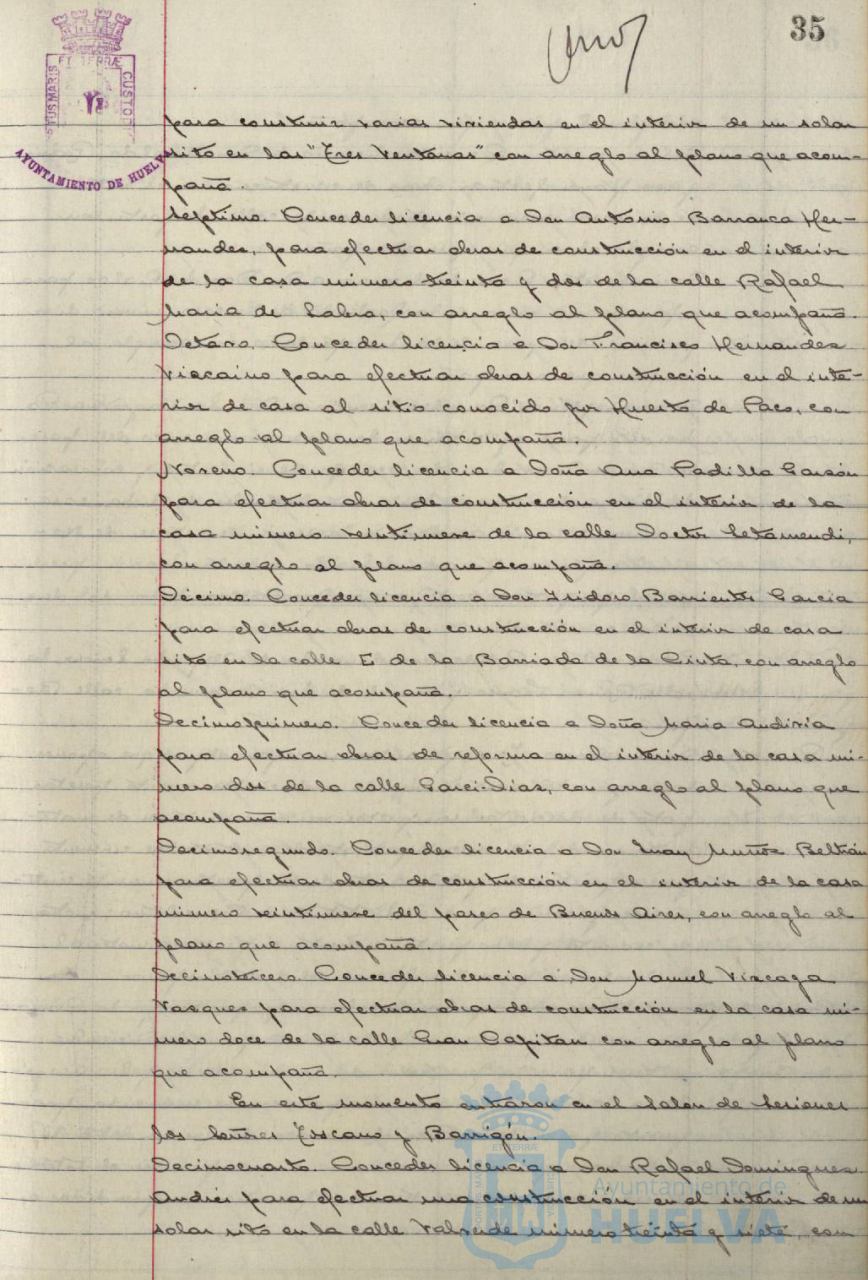 35
PORTUS MARIS ET TERRÆ CUSTODIA
AYUNTAMIENTO DE HUELVA
para construir varias viviendas en el interior de un solar
sito en las "Tres Ventanas" con arreglo al plano que acom-
paña.
Septimo. Conceder licencia a Don Antonio Barranca Her-
nandez, para efectuar obras de construcción en el interior
de la casa número treinta y dos de la calle Rafael
Maria de Labra, con arreglo al plano que acompaña.
Octavo. Conceder licencia a Don Francisco Hernandez
Vizcaino para efectuar obras de construcción en el inte-
rior de casa al sitio conocido por Huerto de Paco, con
arreglo al plano que acompaña.
Noveno. Conceder licencia a Doña Ana Padilla Garzón
para efectuar obras de construcción en el interior de la
casa número veintinueve de la calle Doctor Letamendi,
con arreglo al plano que acompaña.
Décimo. Conceder licencia a Don Isidoro Barrientos Garcia
para efectuar obras de construcción en el interior de casa
sita en la calle E de la Barriada de la Cinta, con arreglo
al plano que acompaña.
Decimoprimero. Conceder licencia a Doña Maria Andivia
para efectuar obras de reforma en el interior de la casa nú-
mero dos de la calle Garci-Diaz, con arreglo al plano que
acompaña.
Decimosegundo. Conceder licencia a Don Juan Muñoz Beltrán
para efectuar obras de construcción en el interior de la casa
número veintinueve del paseo de Buenos Aires, con arreglo al
plano que acompaña.
Decimotercero. Conceder licencia a Don Manuel Vizcaya
Vazquez para efectuar obras de construcción en la casa nú-
mero doce de la calle Gran Capitan con arreglo al plano
que acompaña.
En este momento entraron en el Salon de Sesiones
los Señores Toscano y Barrigón.
Decimocuarto. Conceder licencia a Don Rafael Dominguez
Andrés para efectuar una construcción en el interior de un
solar sito en la calle Valverde número treinta y siete, con
Ayuntamiento de
HUELVA